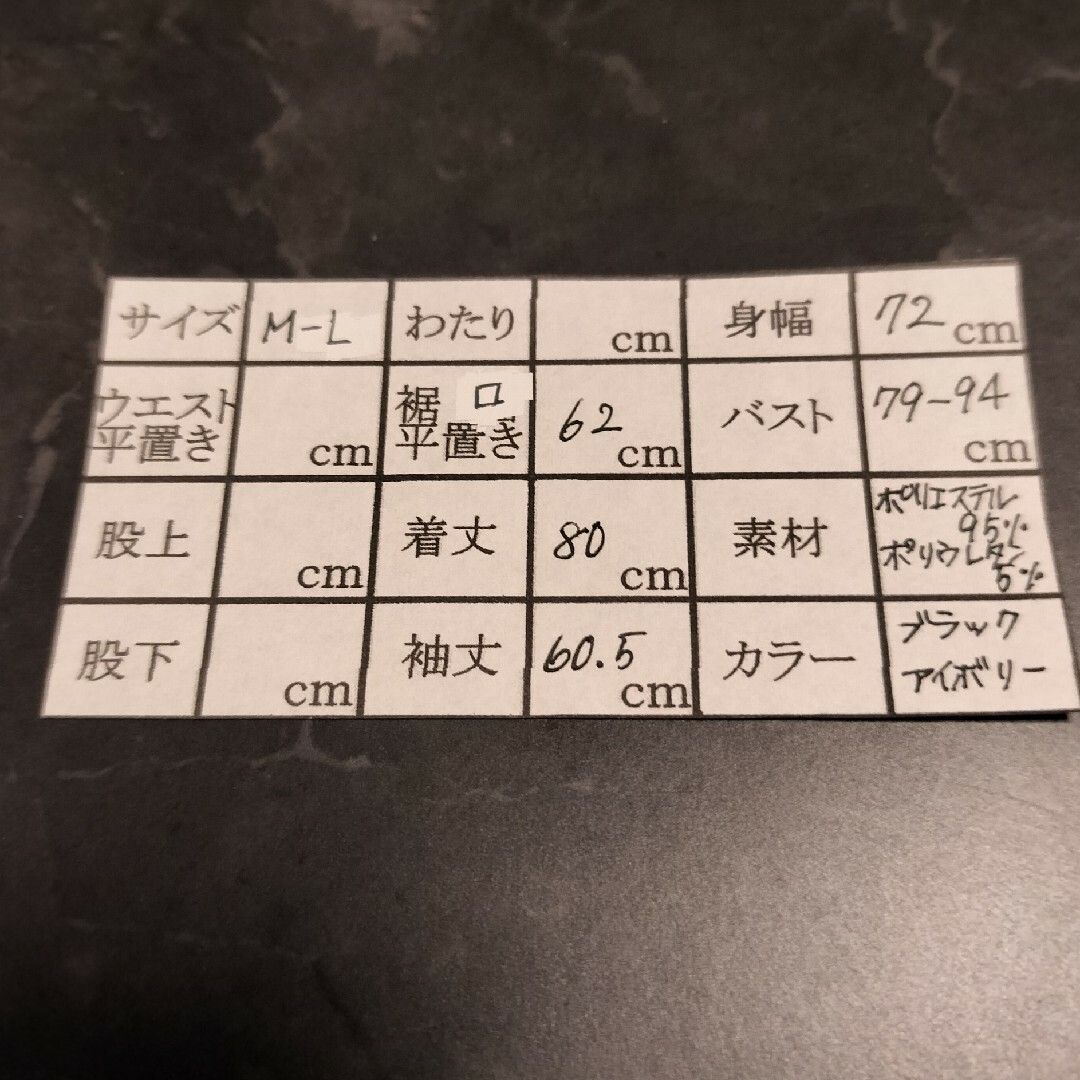 サイズ M-L わたり cm 身幅 72 cm
ウエスト 平置き cm 裾口 平置き 62 cm バスト 79-94 cm
股上 cm 着丈 80 cm 素材 ポリエステル 95% ポリウレタン 5%
股下 cm 袖丈 60.5 cm カラー ブラック アイボリー